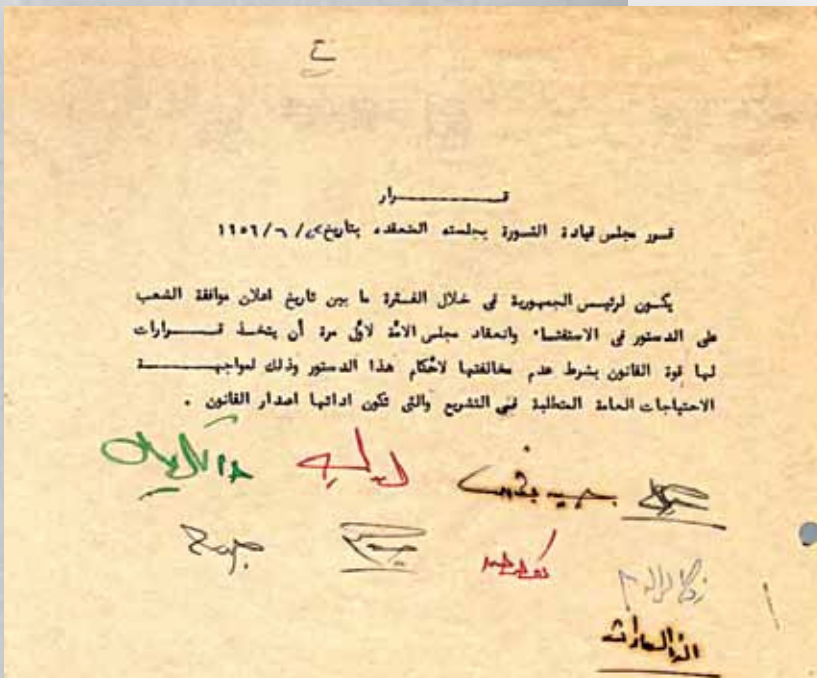 قــــــرار
قرر مجلس قيادة الثورة بجلسته المنعقده بتاريخ / ٦ / ١٩٥٦
يكون لرئيس الجمهورية في خلال الفترة ما بين تاريخ اعلان موافقة الشعب
على الدستور في الاستفتاء وانعقاد مجلس الامٌة لاولٌ مرة أن يتخذ قــــرارات
لها قوة القانون بشرط عدم مخالفتها لاحٌكام هذا الدستور وذلك لمواجهــــــة
الاحتياجات العامة المتطلبة في التشريع والتى تكون اداتها اصدار القانون .
انور السادات